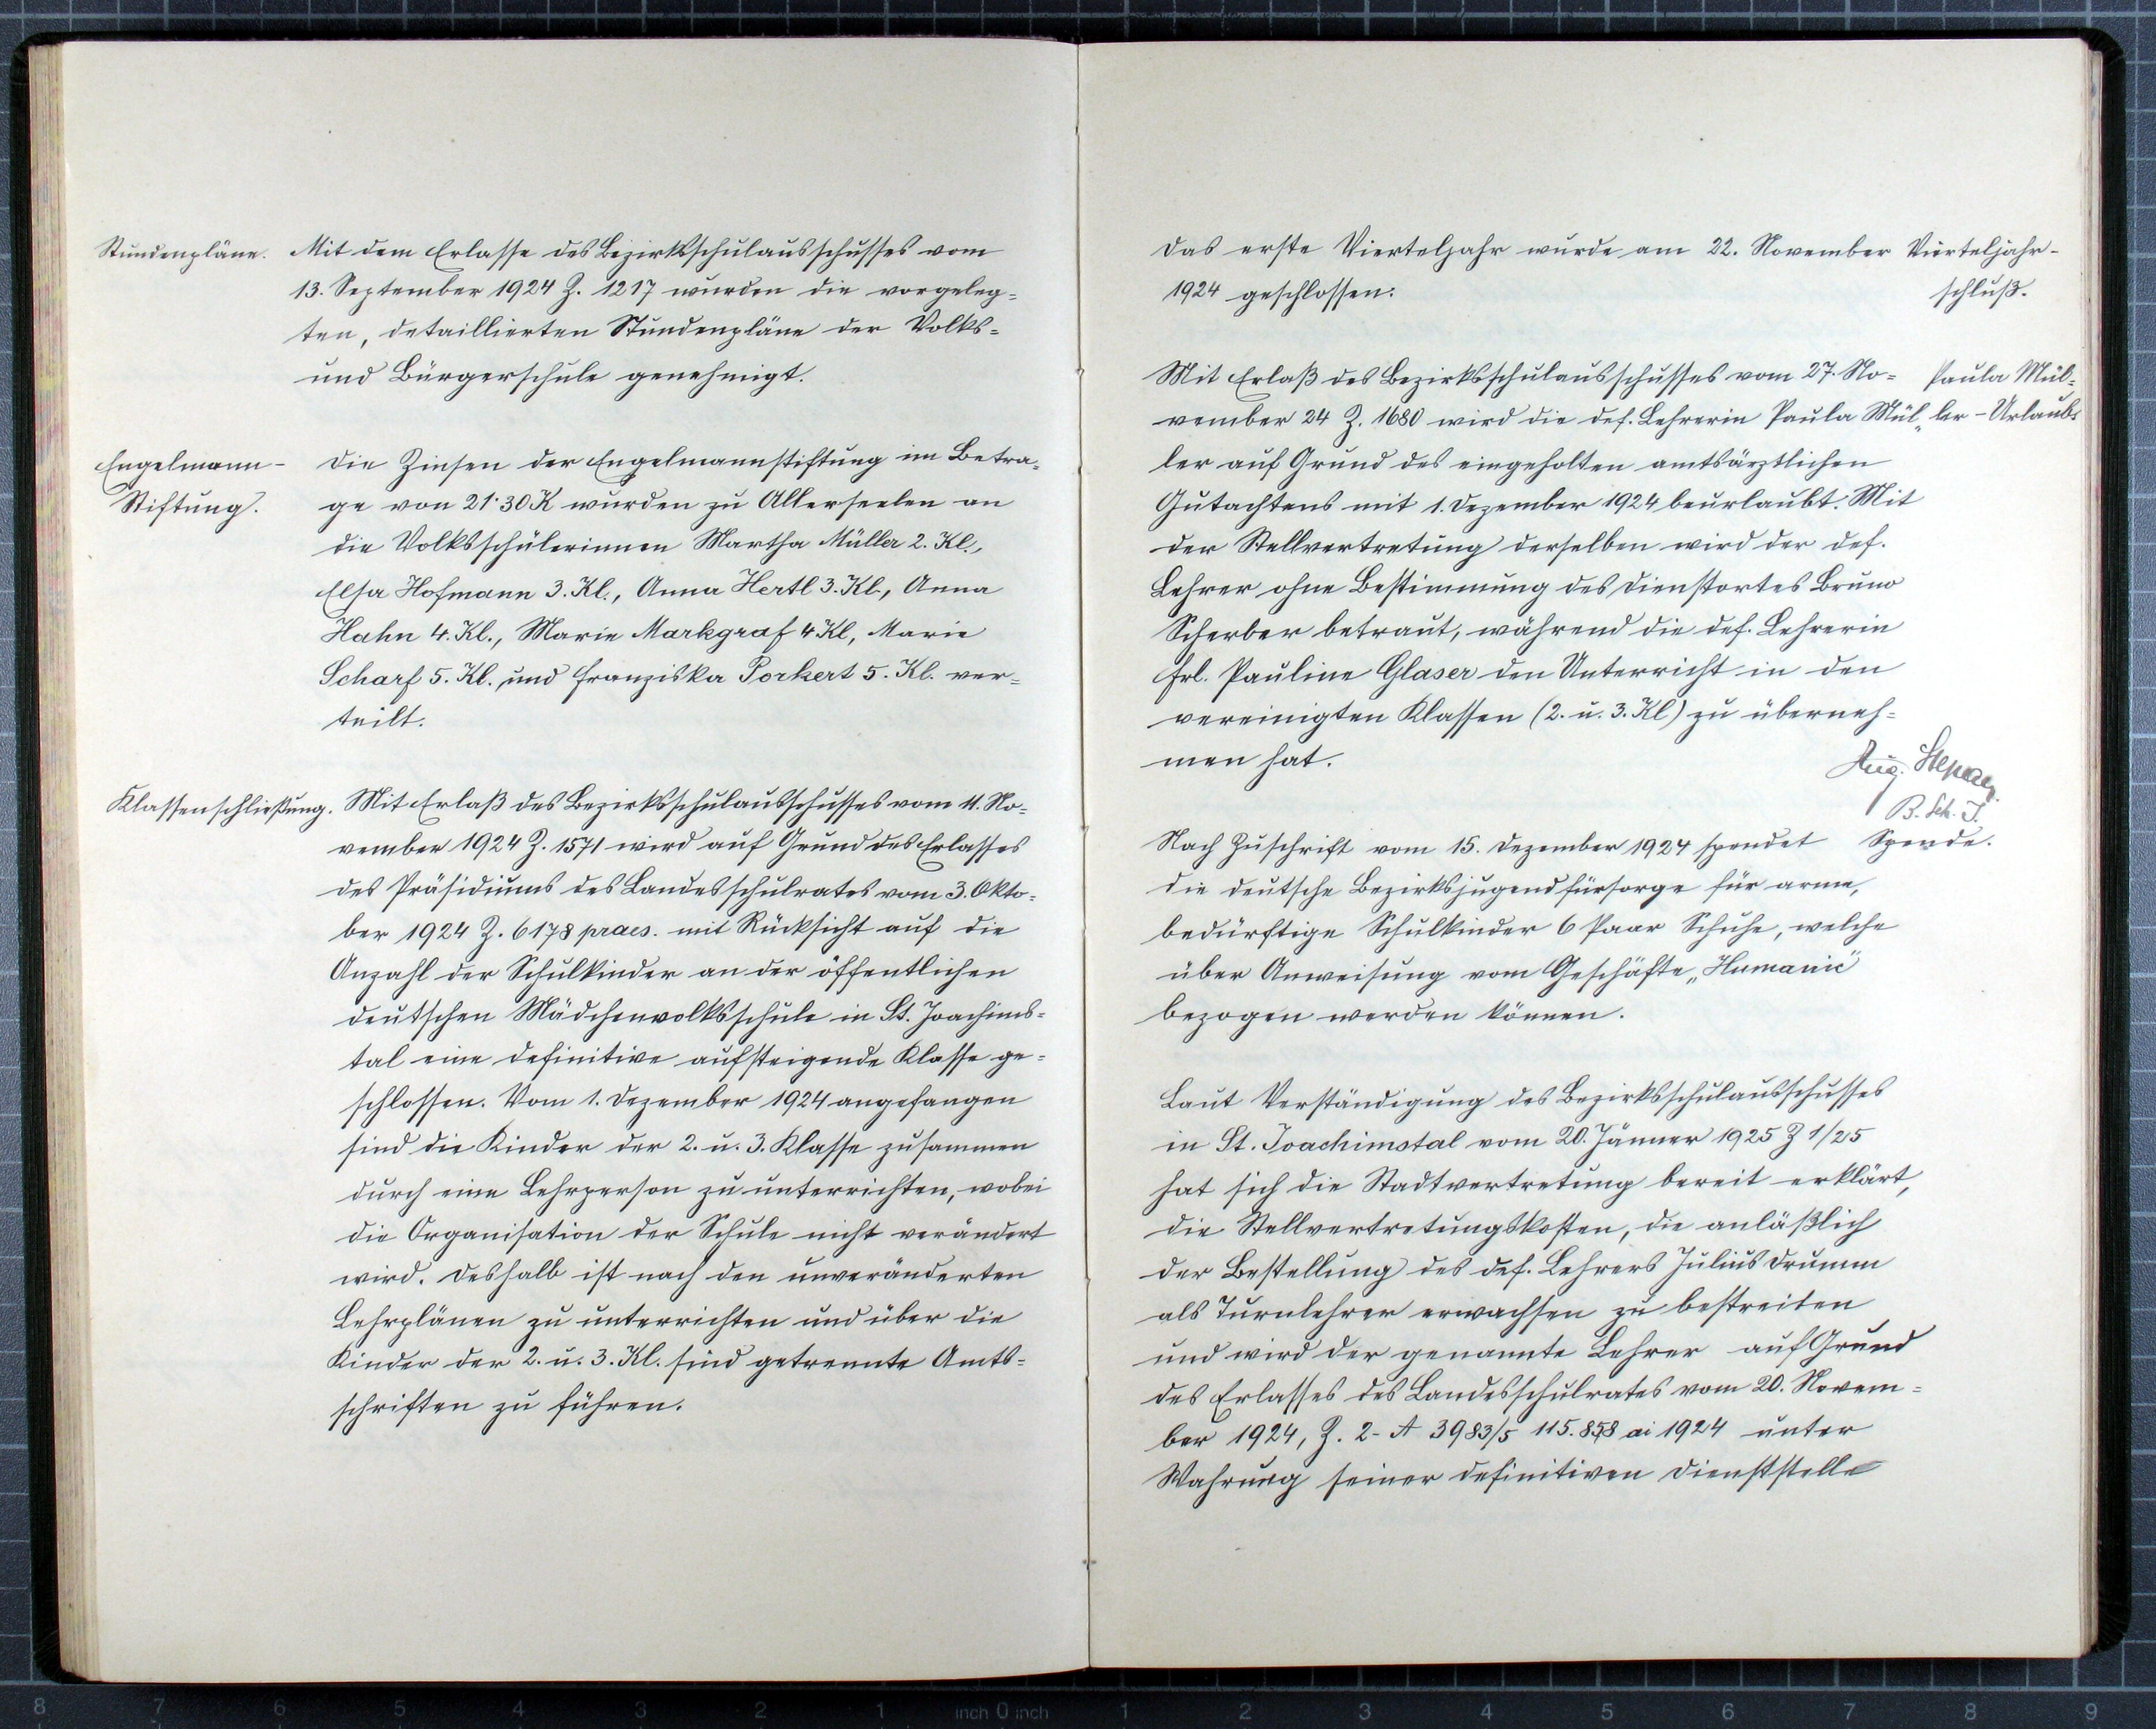 Stundenpläne.
Mit dem Erlasse des Bezirksschulausschusses vom
13. September 1924 Z. 1217 wurden die vorgeleg=
ten, detaillierten Stundenpläne der Volks=
und Bürgerschule genehmigt.
Engelmann-
Stiftung.
Die Zinsen der Engelmannstiftung im Betra=
ge von 21·30 K wurden zu Allerseelen an
die Volksschülerinnen Martha Müller 2. Kl.,
Elsa Hofmann 3. Kl., Anna Hertl 3. Kl., Anna
Hahn 4. Kl., Marie Markgraf 4 Kl, Marie
Scharf 5. Kl. und Franziska Porkert 5. Kl. ver=
teilt.
Klassenschließung.
Mit Erlaß des Bezirksschulausschusses vom 11. No=
vember 1924 Z. 1571 wird auf Grund des Erlasses
des Präsidiums des Landesschulrates vom 3. Okto=
ber 1924 Z. 6178 praes. mit Rücksicht auf die
Anzahl der Schulkinder an der öffentlichen
deutschen Mädchenvolksschule in St. Joachims=
tal eine definitive aufsteigende Klasse ge=
schlossen. Vom 1. Dezember 1924 angefangen
sind die Kinder der 2. u. 3. Klasse zusammen
durch eine Lehrperson zu unterrichten, wobei
die Organisation der Schule nicht verändert
wird. Deshalb ist nach den unveränderten
Lehrplänen zu unterrichten und über die
Kinder der 2. u. 3. Kl. sind getrennte Amts=
schriften zu führen.
Das erste Vierteljahr wurde am 22. November
1924 geschlossen.
Vierteljahr-
schluß.
Mit Erlaß des Bezirksschulausschusses vom 27. No=
vember 24 Z. 1680 wird die def. Lehrerin Paula Mül=
ler auf Grund des eingeholten amtsärztlichen
Gutachtens mit 1. Dezember 1924 beurlaubt. Mit
der Stellvertretung derselben wird der def.
Lehrer ohne Bestimmung des Dienstortes Bruno
Scherber betraut, während die def. Lehrerin
Frl. Pauline Glaser den Unterricht in den
vereinigten Klassen (2. u. 3. Kl) zu überneh=
men hat.
Paula Mül=
ler - Urlaub.
Aug.
B. Sch. I.
Nach Zuschrift vom 15. Dezember 1924 spendet
die deutsche Bezirksjugendfürsorge für arme,
bedürftige Schulkinder 6 Paar Schuhe, welche
über Anweisung vom Geschäfte „Humanic"
bezogen werden können.
Spende.
Laut Verständigung des Bezirksschulausschusses
in St. Joachimstal vom 20. Jänner 1925 Z 1/25
hat sich die Stadtvertretung bereit erklärt,
die Stellvertretungskosten, die anläßlich
der Bestellung des def. Lehrers Julius Drumm
als Turnlehrer erwachsen zu bestreiten
und wird der genannte Lehrer auf Grund
des Erlasses des Landesschulrates vom 20. Novem=
ber 1924, Z. 2-A 3983/5 115.858 ai 1924 unter
Wahrung seiner definitiven Dienststelle
8 7 6 5 4 3 2 1 inch 0 inch 1 2 3 4 5 6 7 8 9